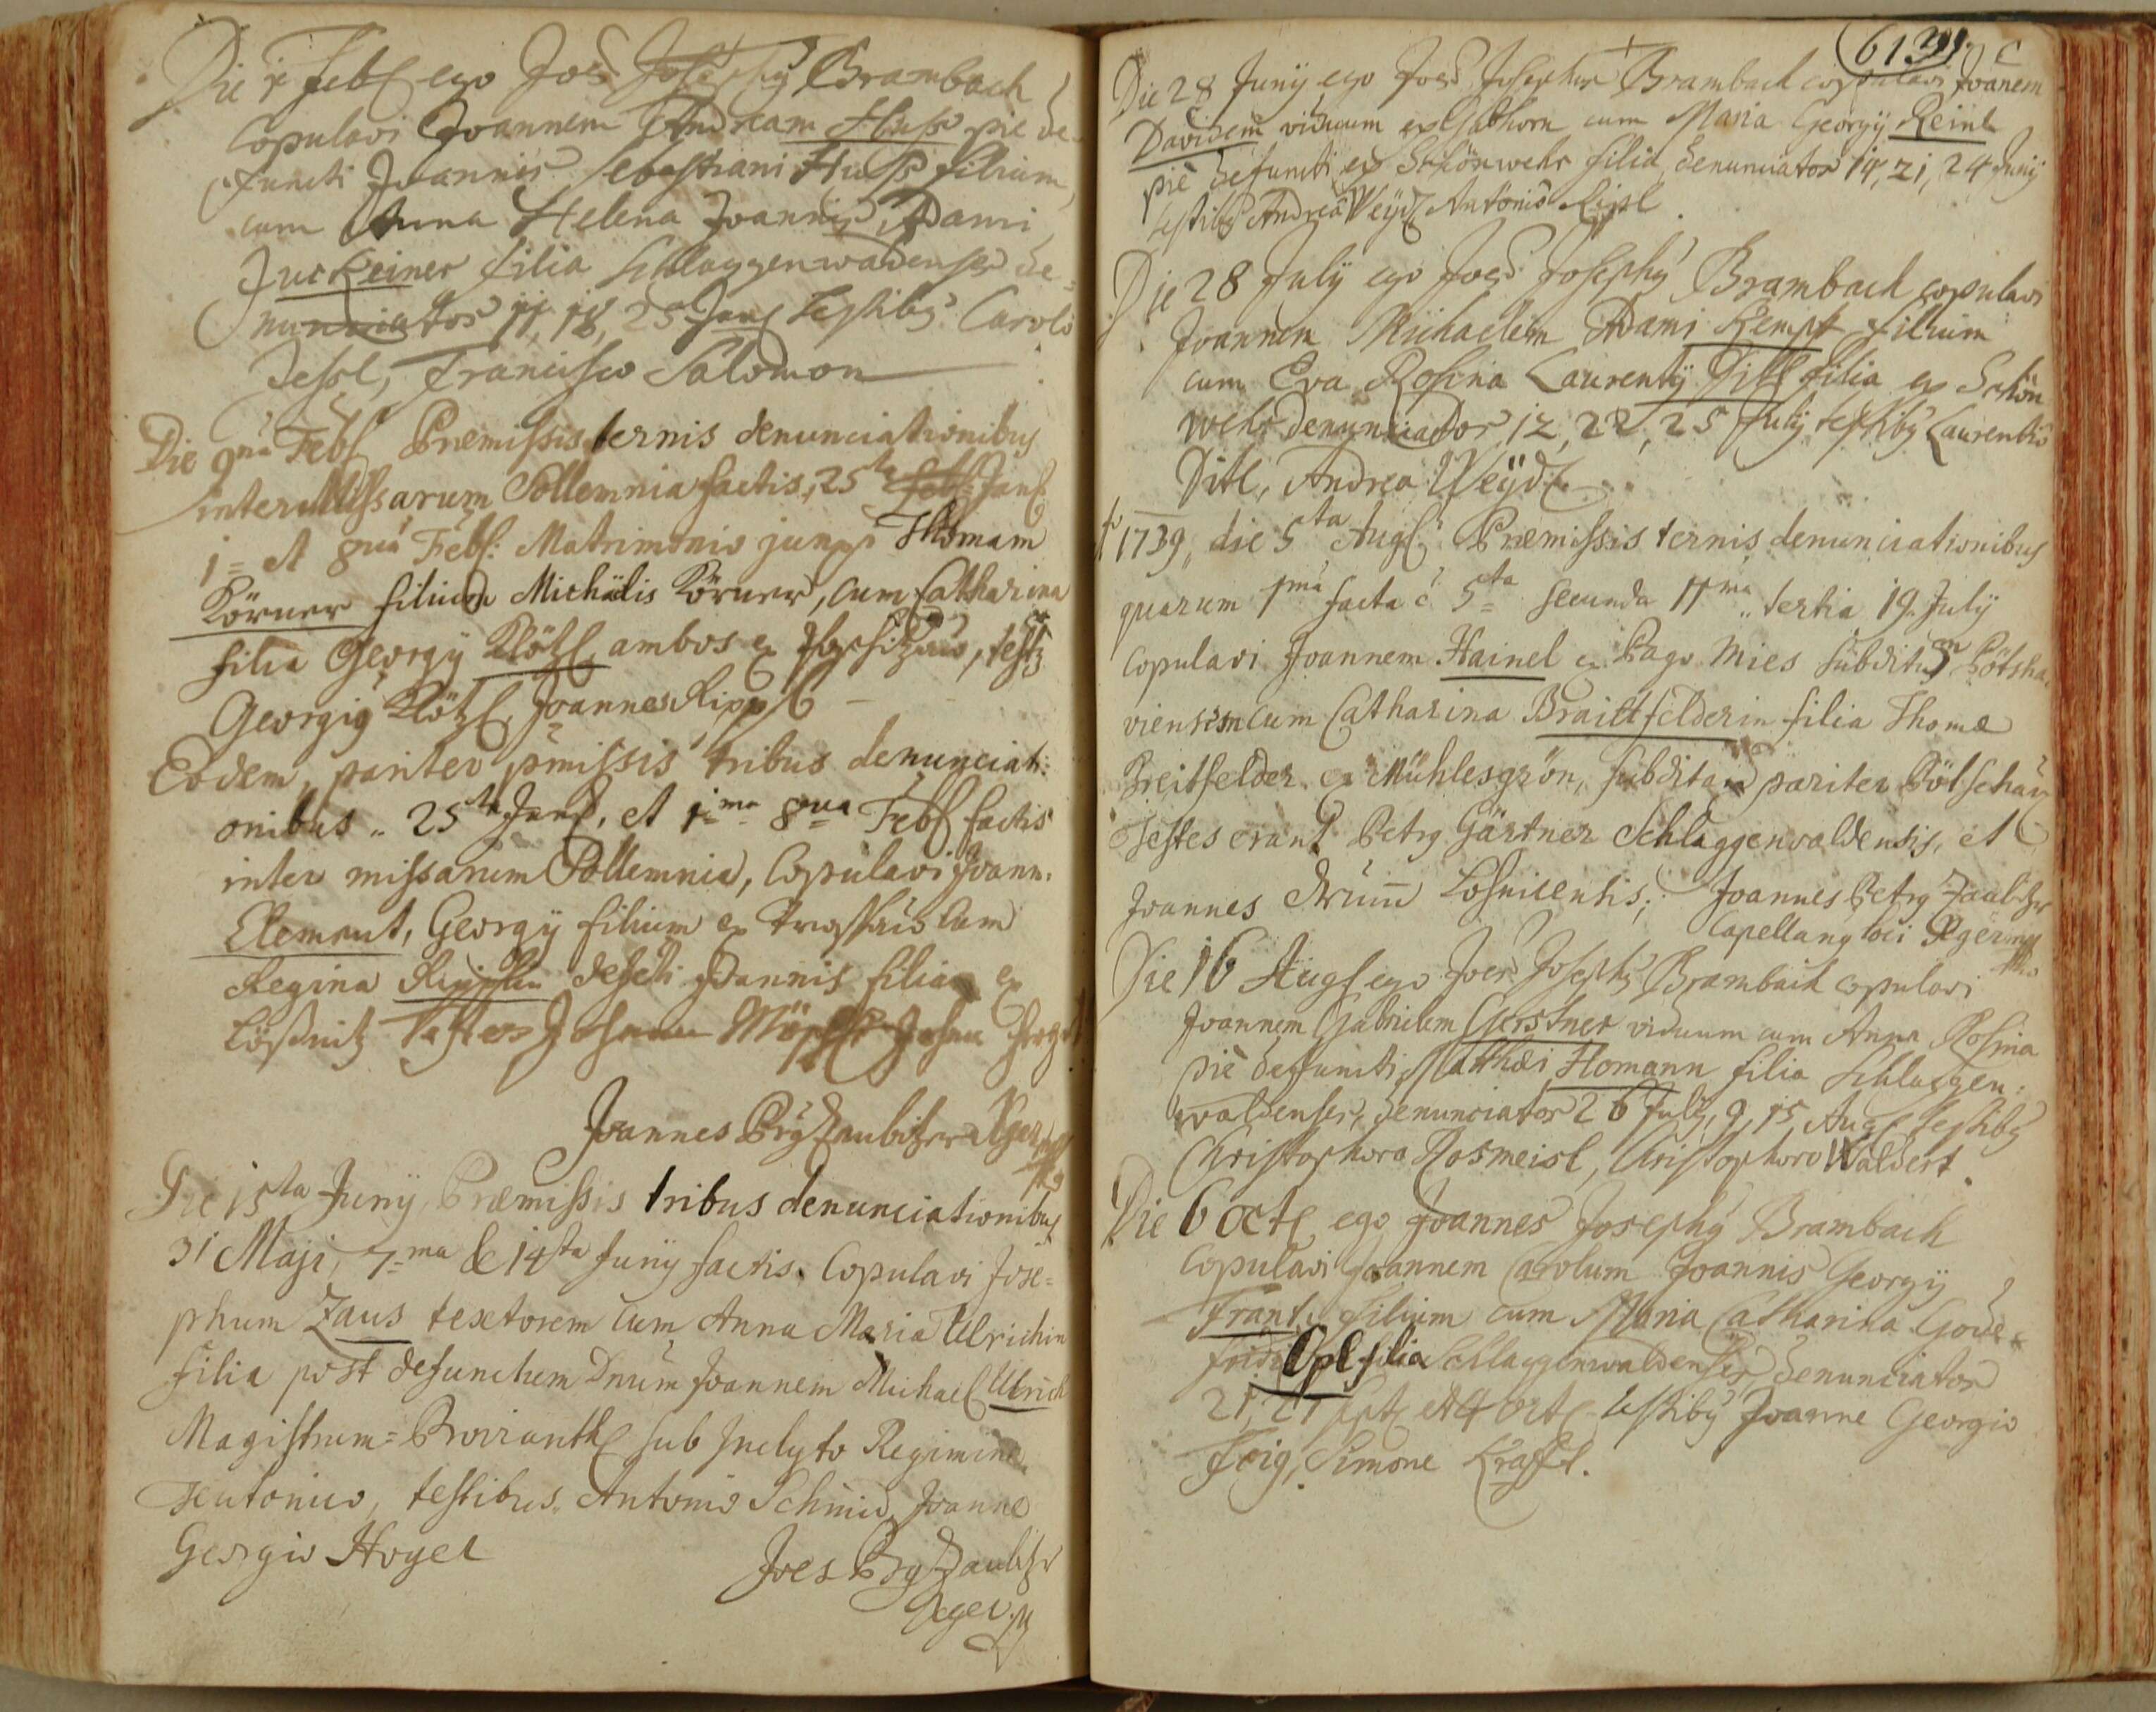 Die Feb ego Joês Josephg Brambach
Copulavi Joannem Andream Huss pie de-
functi Joannis Sebastiani Huss filium,
cum Anna Helena Joannis Adami
Juckeiner filia Schlaggenwaldenses de-
nunciatos 11, 18, 25 Jan testibg Carolo
Jessl, Francisco Salomon
Die 9na Feb Præmissis ternis denunciationibus
inter Missarum Sollemnia factis, 25ta Jan
1= et 8va Feb: Matrimonio junxi Thomam
Körner filium Michaëlis Körner, cum Catharina
filia Georgÿ Klötzl ambos ex
Georgig Klötzl, Joannes Rippl
Eodem, pariter pmissis tribus denunciati-
onibus 25ta Jan, et 1ma 8va Feb factis
inter missarum Sollemnia, Copulavi Joann.
Element, Georgÿ filium ex cum
Regina Joannis filia ex
Lößnitz Testes Johann Johan
Joannes Zaubitzer
Die 15ta Junÿ, Præmissis tribus denunciationibus
31 Maji, 7=ma & 14ta Junÿ factis. Copulavi Jose=
phum Zaus textorem cum Anna Maria Ulrichin
filia post defunctum Dnum Joannem Michael Ulrich
Magistrum= sub Inclyto Regimine
Teutonico, testibus Antonio Schmid, Joanne
Georgio Hoyer
Joes Zaubitzer
613
Die 28 Junÿ ego Joês Josephus Brambach copulavi Joanem
Davidem viduum ex Gabhorn cum Maria Georgÿ Reinl
pie defuncti ex Schönwehr filia, denunciatos 14, 21, 24 Junÿ
testibg Andrea Weÿdl Antonio Ripl
Die 28 Julÿ ego Joês Josephg Brambach copulavi
Joannem Michaelem Adami Kempf filium
cum Eva Rosina Laurentÿ Ditl filia ex Schön
wehr denunciatos 12, 22, 25 Julÿ testibg Laurentio
Ditl, Andrea Weÿdl
1739, die 5ta Aug. Præmissis ternis denunciationibus
quarum 1ma facta ê 5ta secunda 11ma tertia 19. Julÿ
Copulavi Joannem Hainel ex Pago Mies subditum Pötscha-
viensem cum Catharina Braittfelderin filia Thomæ
Breitfelder ex Mühlesgrön, subditam pariter Pötschav
Testes erant Petrg Gärtner Schlaggenwaldensis, et
Joannes Losnicensis; Joannes Petrg Zaubitzer
Capellang loci
Die 16 Aug ego Joês Josephg Brambach copulavi
Joannem Gabrielem Gerstner viduum cum Anna Rosina
pie deffuncti Matthæi Homann filia Schlaggen-
waldenses, denunciatos 26 Julÿ, 9, 15 Aug testibg
Christophoro Rosmeisl, Christophoro Waldert.
Die 6 Oct ego Joannes Josephg Brambach
Copulavi Joannem Carolum Joannis Georgÿ
Frantz filium cum Maria Catharina Gode-
fridi Opl filia Schlaggenwaldenses, denunciatos
21, 27 Sept et 4 Oct testibg Joanne Georgio
Feig, Simone Krafft.